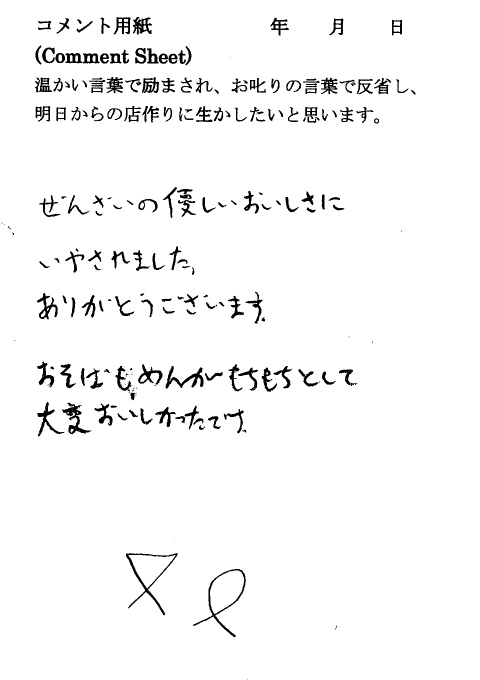 コメント用紙 年 月 日
(Comment Sheet)
温かい言葉で励まされ、お叱りの言葉で反省し、
明日からの店作りに生かしたいと思います。
ぜんざいの優しいおいしさに
いやされました。
ありがとうございます。
おそばも、めんがもちもちとして
大変おいしかったです。